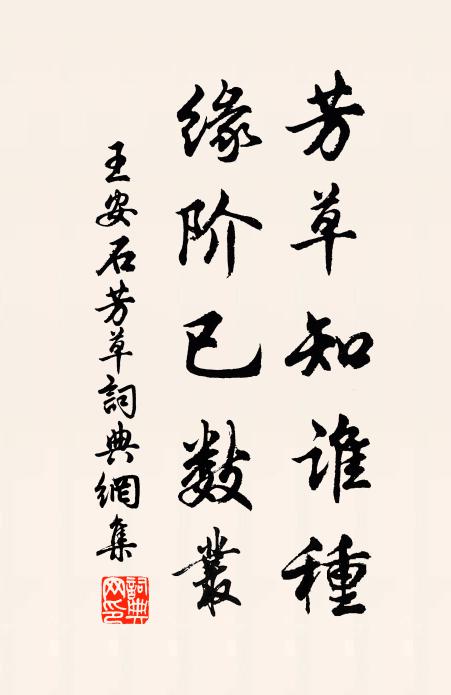 芳草知谁種
缘阶已数叢
王安石芳草詞典網集
詞典網印